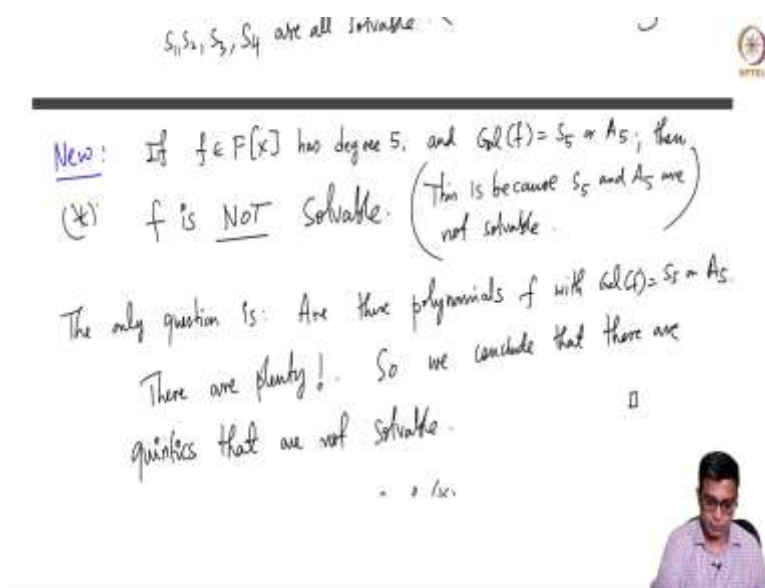 S₁, S₂, S₃, S₄ are all solvable.
NPTEL
New: If f ∈ F[x] has degree 5, and Gal(f) = S₅ or A₅, then
(*) f is NOT Solvable. (This is because S₅ and A₅ are
not solvable.)
The only question is: Are there polynomials f with Gal(f) = S₅ or A₅.
There are plenty! So we conclude that there are
quintics that are not solvable. □